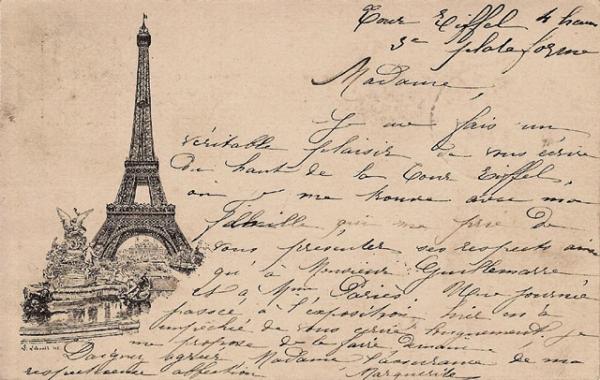 Tour Eiffel 4 heures
3e plateforme
Madame,
Je me fais un
véritable plaisir de vous écrire
du haut de la Tour Eiffel,
où je me trouve avec ma
famille qui me prie de
vous présenter ses respects ainsi
qu'à Monsieur Guillemarre
et à Mme Pariès Une journée
passée à l'exposition m'a
empêché de vous écrire longuement. Je
me propose de le faire demain
Daignez agréer Madame l'assurance de ma
respectueuse affection
Marguerite